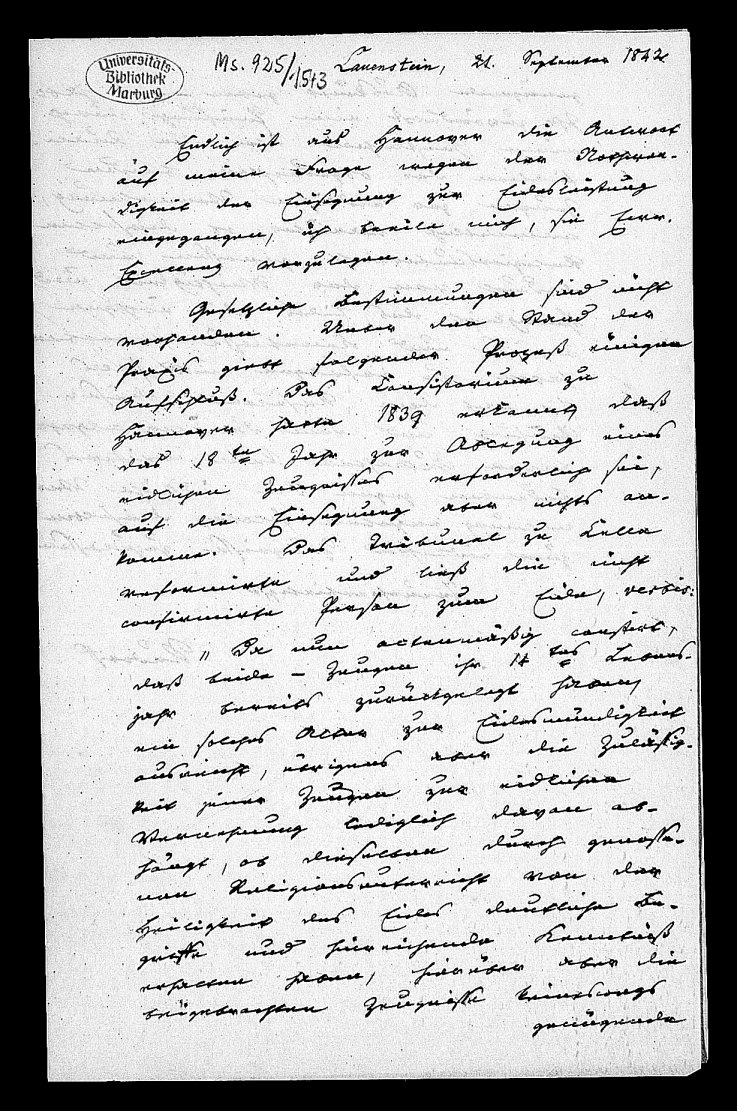 Universitäts-
Bibliothek
Marburg
Ms. 925/1513
Lauenstein, 21. September 1842
Endlich ist aus Hannover die Antwort
auf meine Frage wegen der Nothwen-
digkeit der Einsegnung zur Eidesleistung
eingegangen, ich beeile mich, sie Ew.
Excellenz vorzulegen.
Gesetzliche Bestimmungen sind nicht
vorhanden. Ueber den Stand der
Praxis giebt folgender Prozeß einigen
Aufschluß. Das Consistorium zu
Hannover hatte 1839 erkannt daß
das 18te Jahr zur Ablegung eines
eidlichen Zeugnisses erforderlich sei,
auf die Einsegnung aber nichts an-
komme. Das Tribunal zu Celle
reformirte und ließ die nicht
confirmirte Person zum Eide, verbis:
„Da nun actenmäßig constirt,
daß beide – Zeugen ihr 14tes Lebens-
jahr bereits zurückgelegt haben,
ein solches Alter zur Eidesmündigkeit
ausreicht, übrigens aber die Zulässig-
keit jener Zeugen zur eidlichen
Vernehmung lediglich davon ab-
hängt, ob dieselben durch genosse-
nen Religionsunterricht von der
Heiligkeit des Eides deutliche Be-
griffe und hinreichende Kenntniß
erhalten haben, hierüber aber die
beigebrachten Zeugnisse keineswegs
genügende